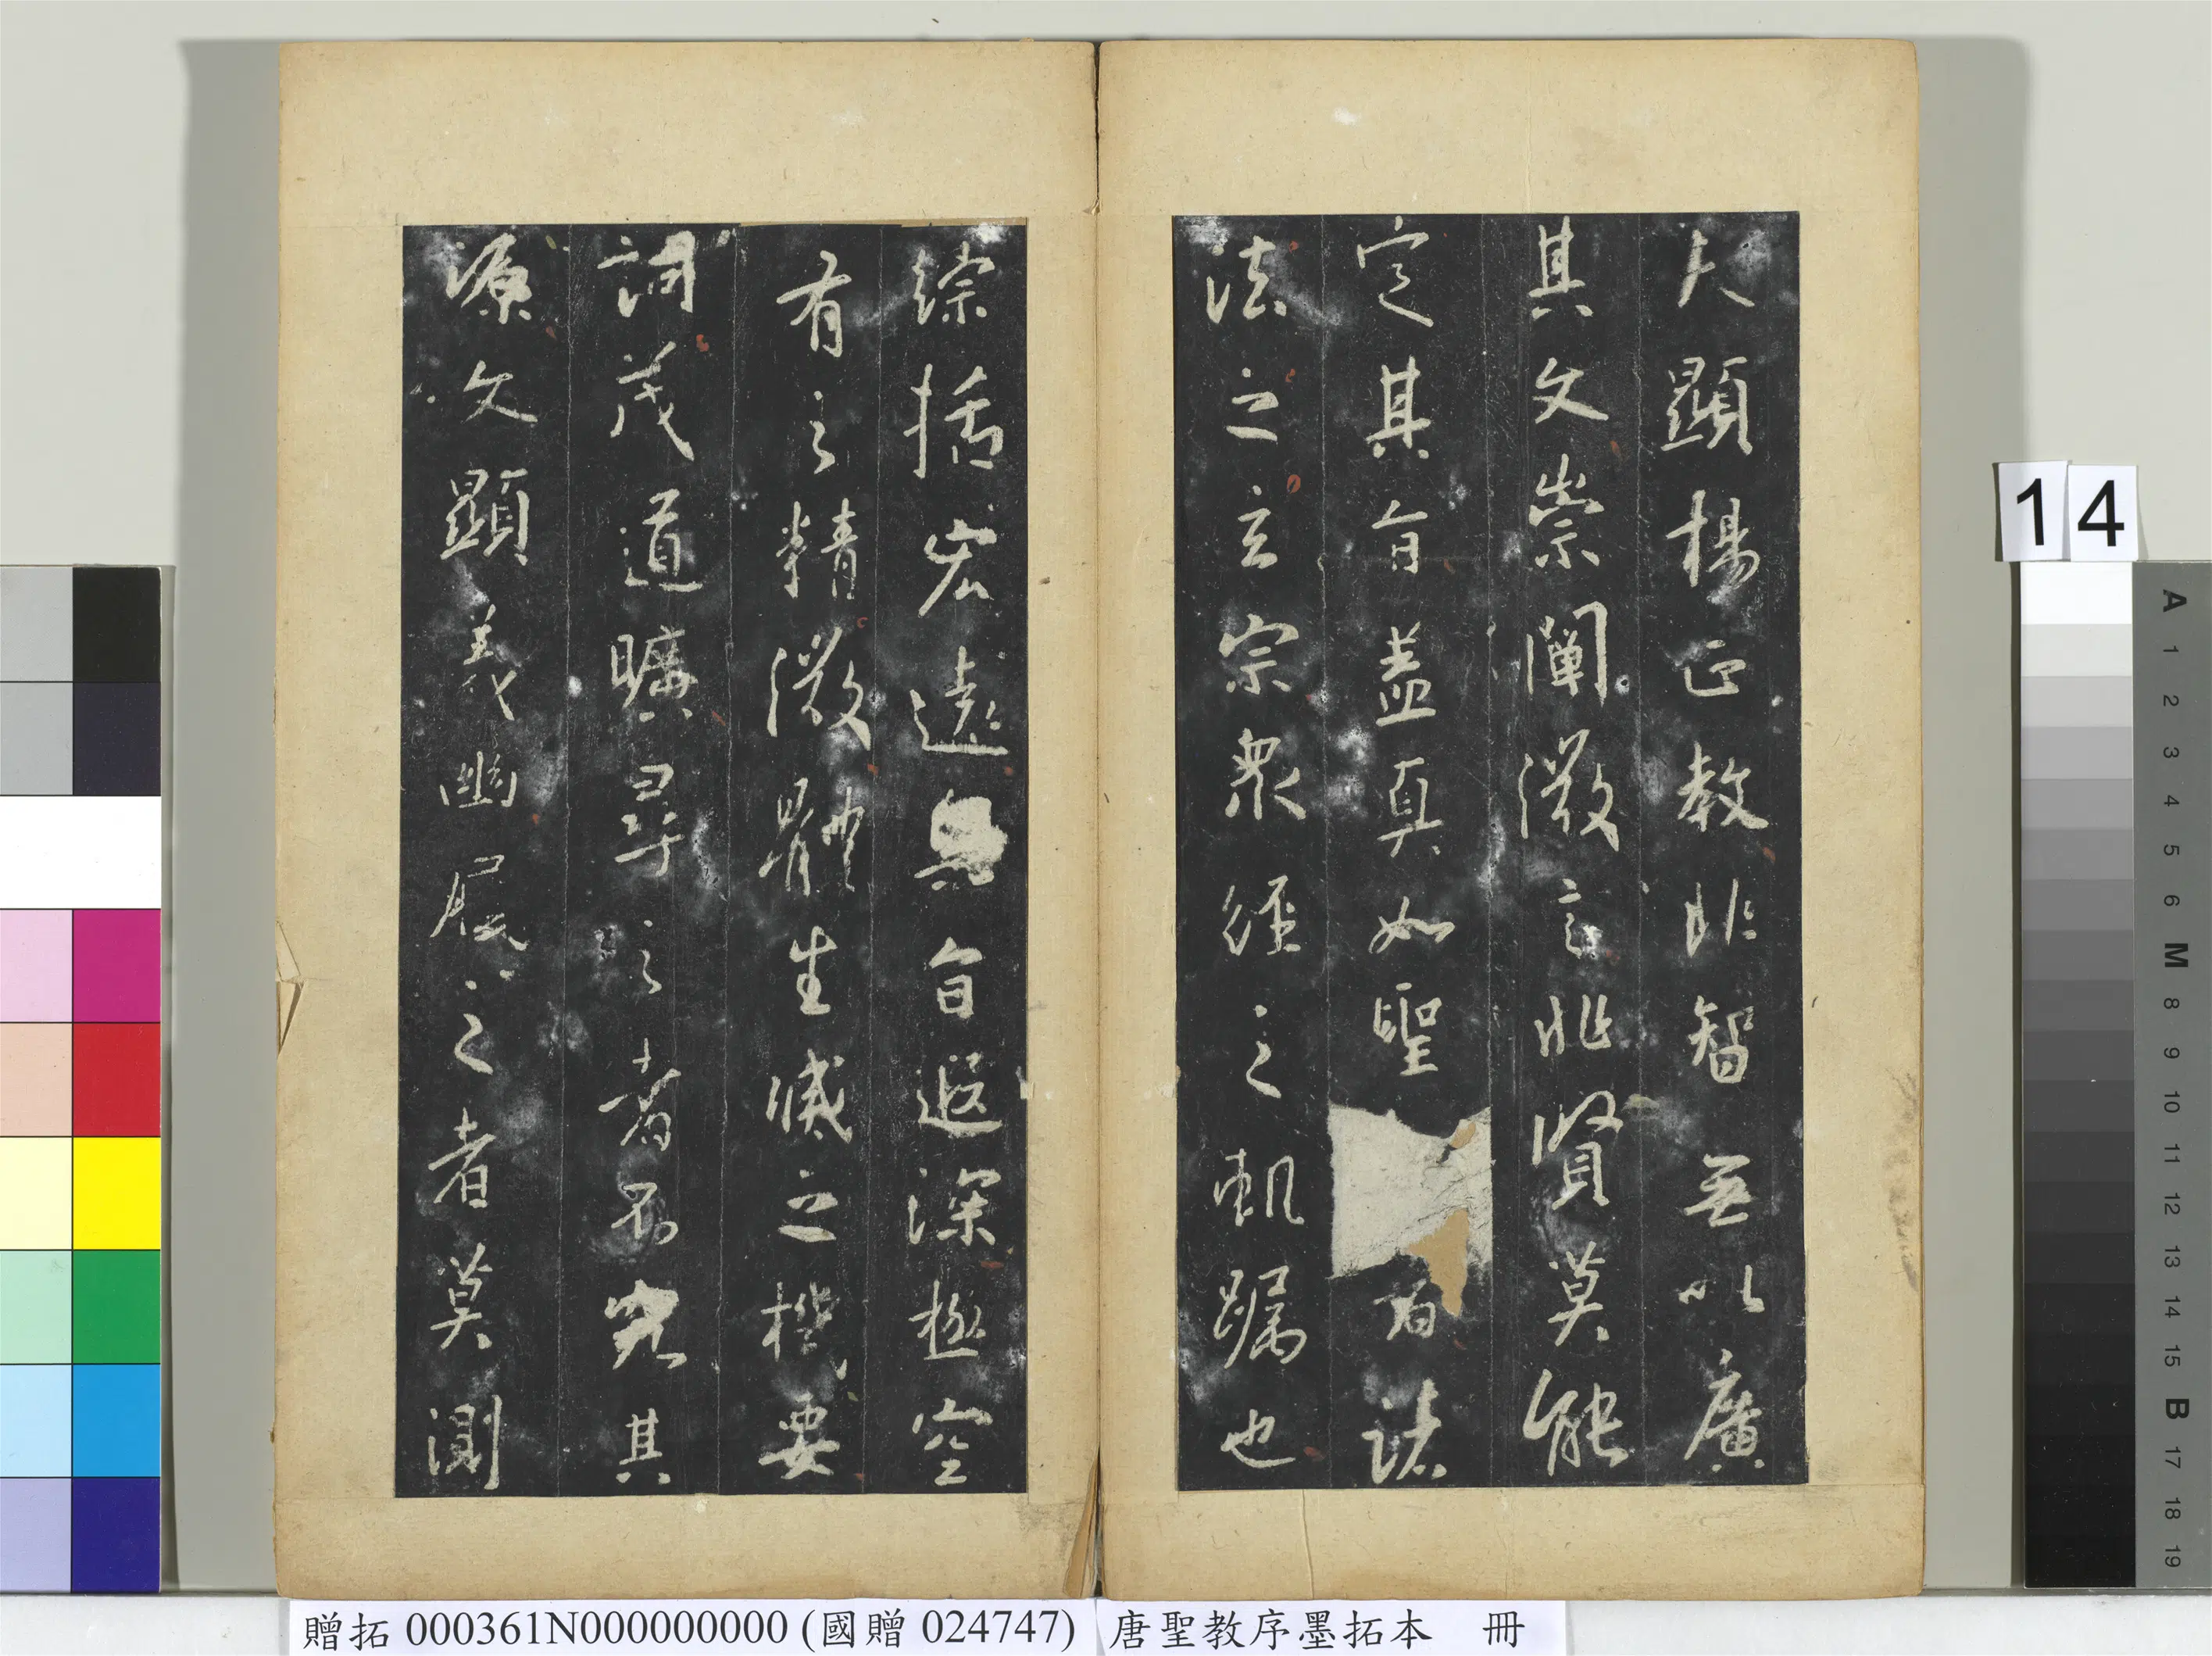 夫顯揚正教非智無以廣
其文崇闡微言非賢莫能
定其旨盖真如聖者諸
法之玄宗衆經之軌躅也
綜括宏遠無旨遐深極空
有之精微體生滅之機要
詞茂道曠尋之者不究其
源文顯義幽履之者莫測
14
A
1
2
3
4
5
6
M
8
9
10
11
12
13
14
15
B
17
18
19
贈拓 000361N000000000 (國贈 024747)
唐聖教序墨拓本 冊